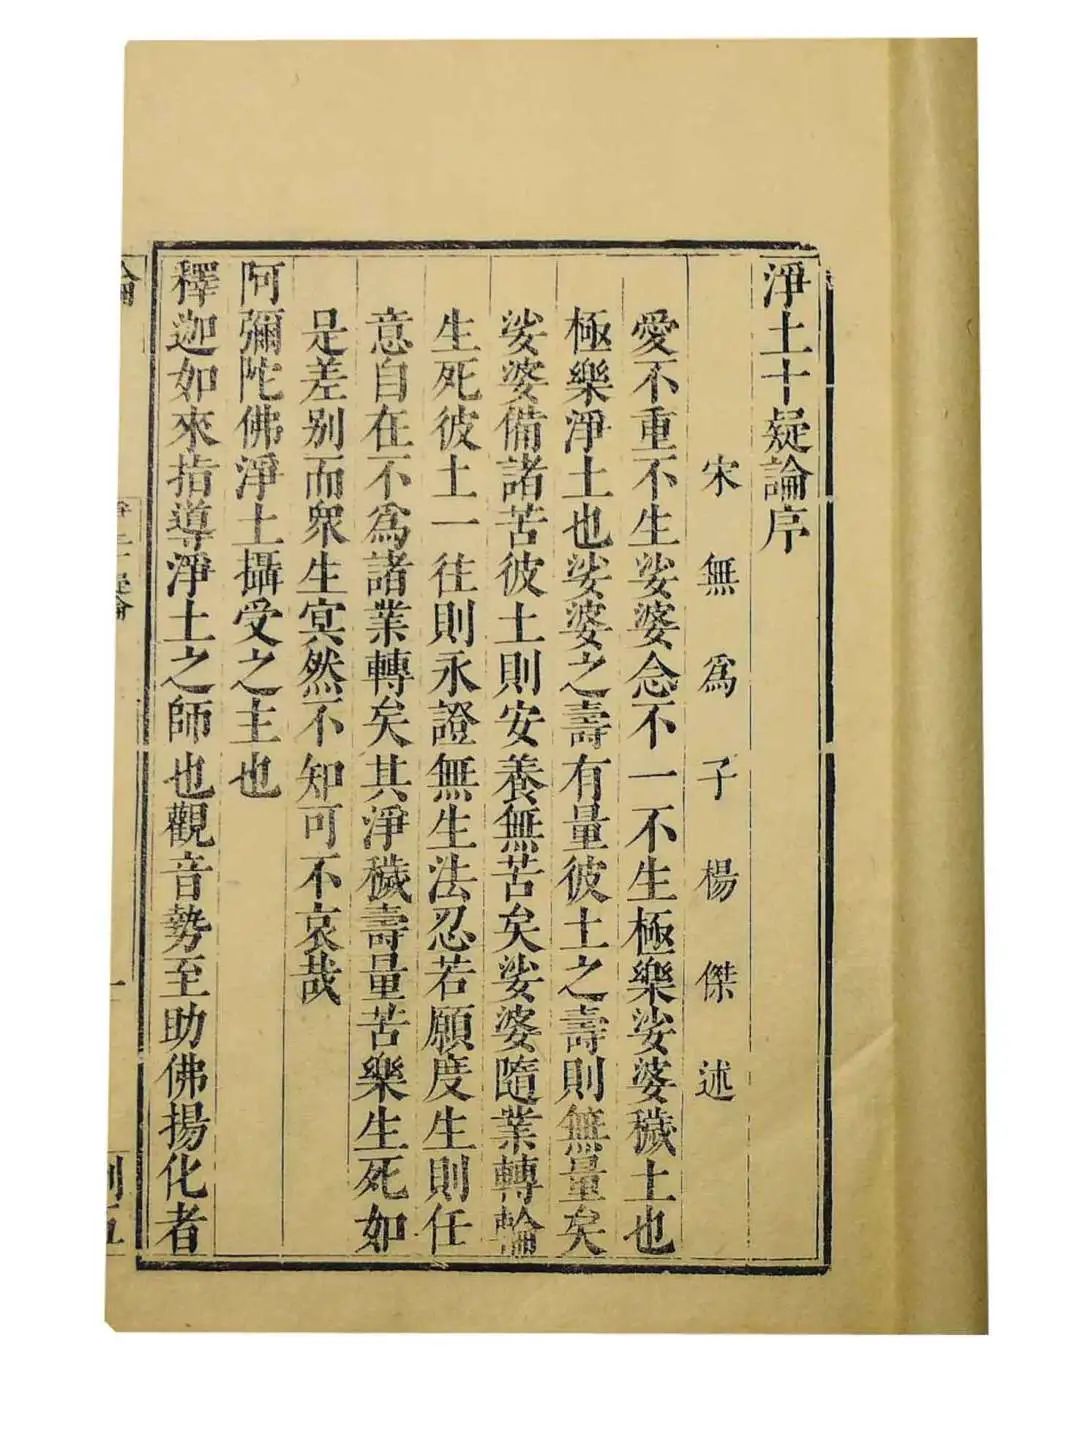 淨土十疑論序
宋無爲子楊傑述
愛不重不生娑婆念不一不生極樂娑婆穢土也
極樂淨土也娑婆之壽有量彼土之壽則無量矣
娑婆備諸苦彼土則安養無苦矣娑婆隨業轉輪
生死彼土一往則永證無生法忍若願度生則任
意自在不爲諸業轉矣其淨穢壽量苦樂生死如
是差别而衆生冥然不知可不哀哉
阿彌陀佛淨土攝受之主也
釋迦如來指導淨土之師也觀音勢至助佛揚化者